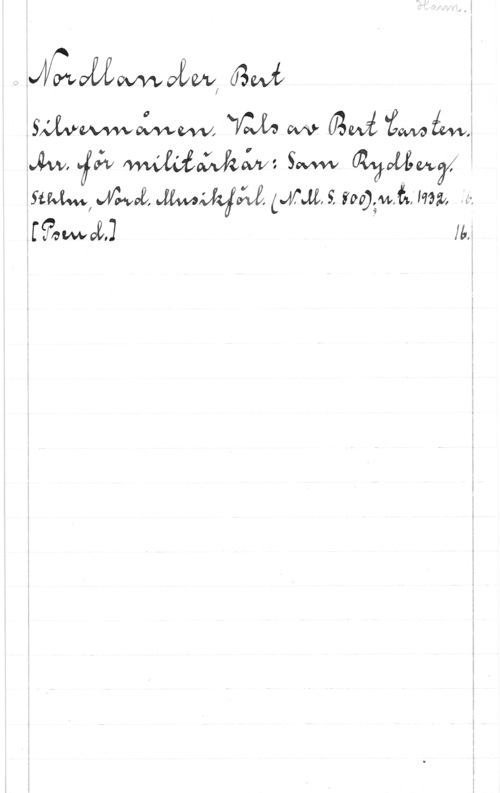 Harm.
Nordlander, Bert
Silvermånen. Vals av Bert Carsten.
Arr. för militärkår: Sam Rydberg.
Sthlm, Nord. Musikförl. (N.M.S. 800), u. tr. 1932. 16.
[Pseud.] 16.